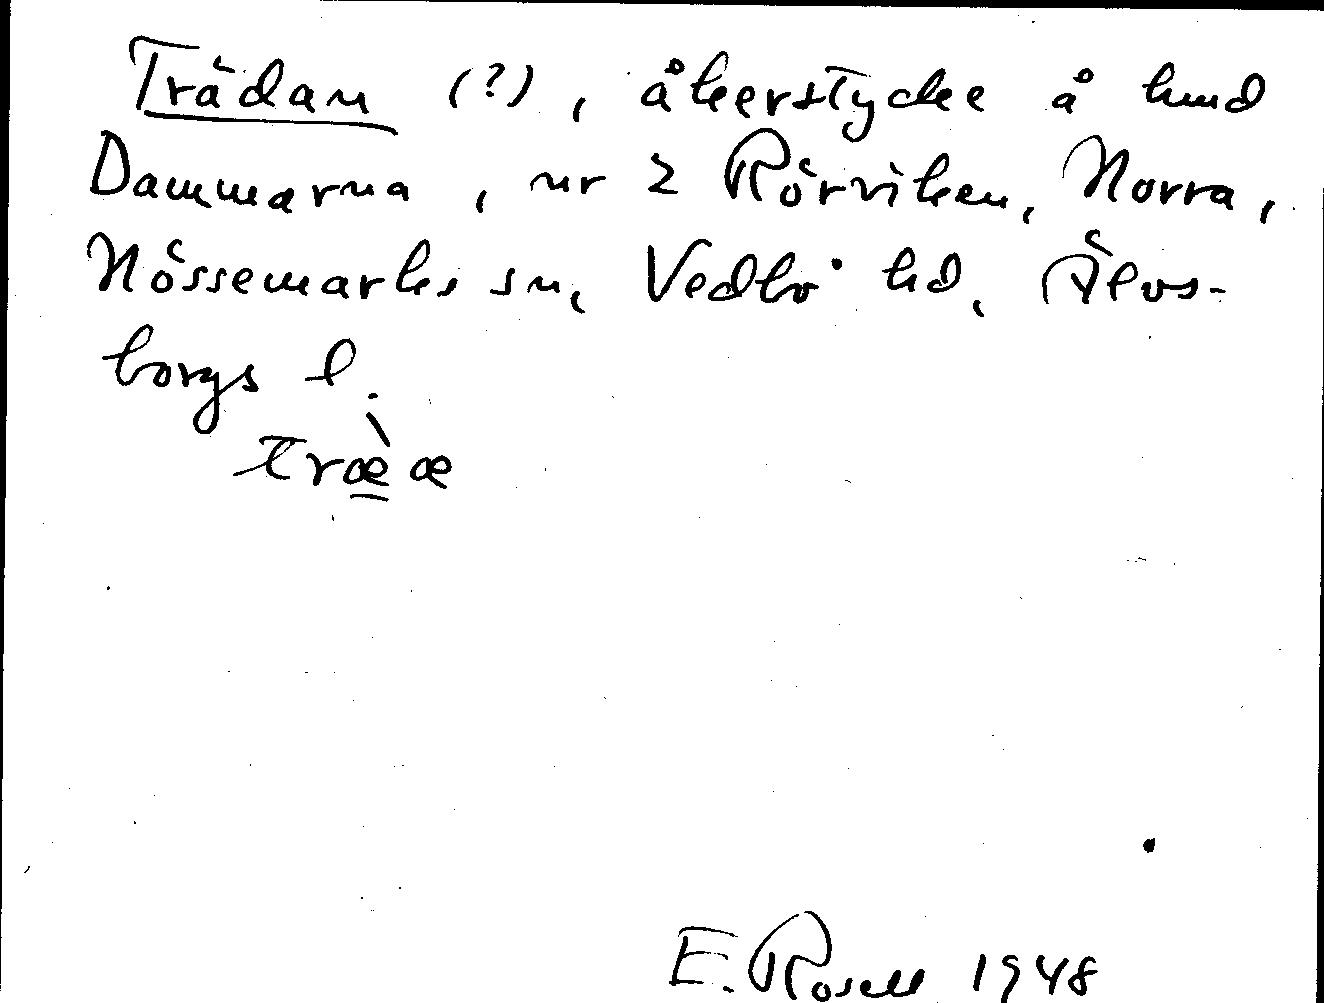 Trädan (?), åkerstycke å hmd
Dammarna, nr 2 Rörviken, Norra,
Nössemarks sn, Vedbo hd, Älvs-
borgs l.
træ̀æ
E. Rosell 1948